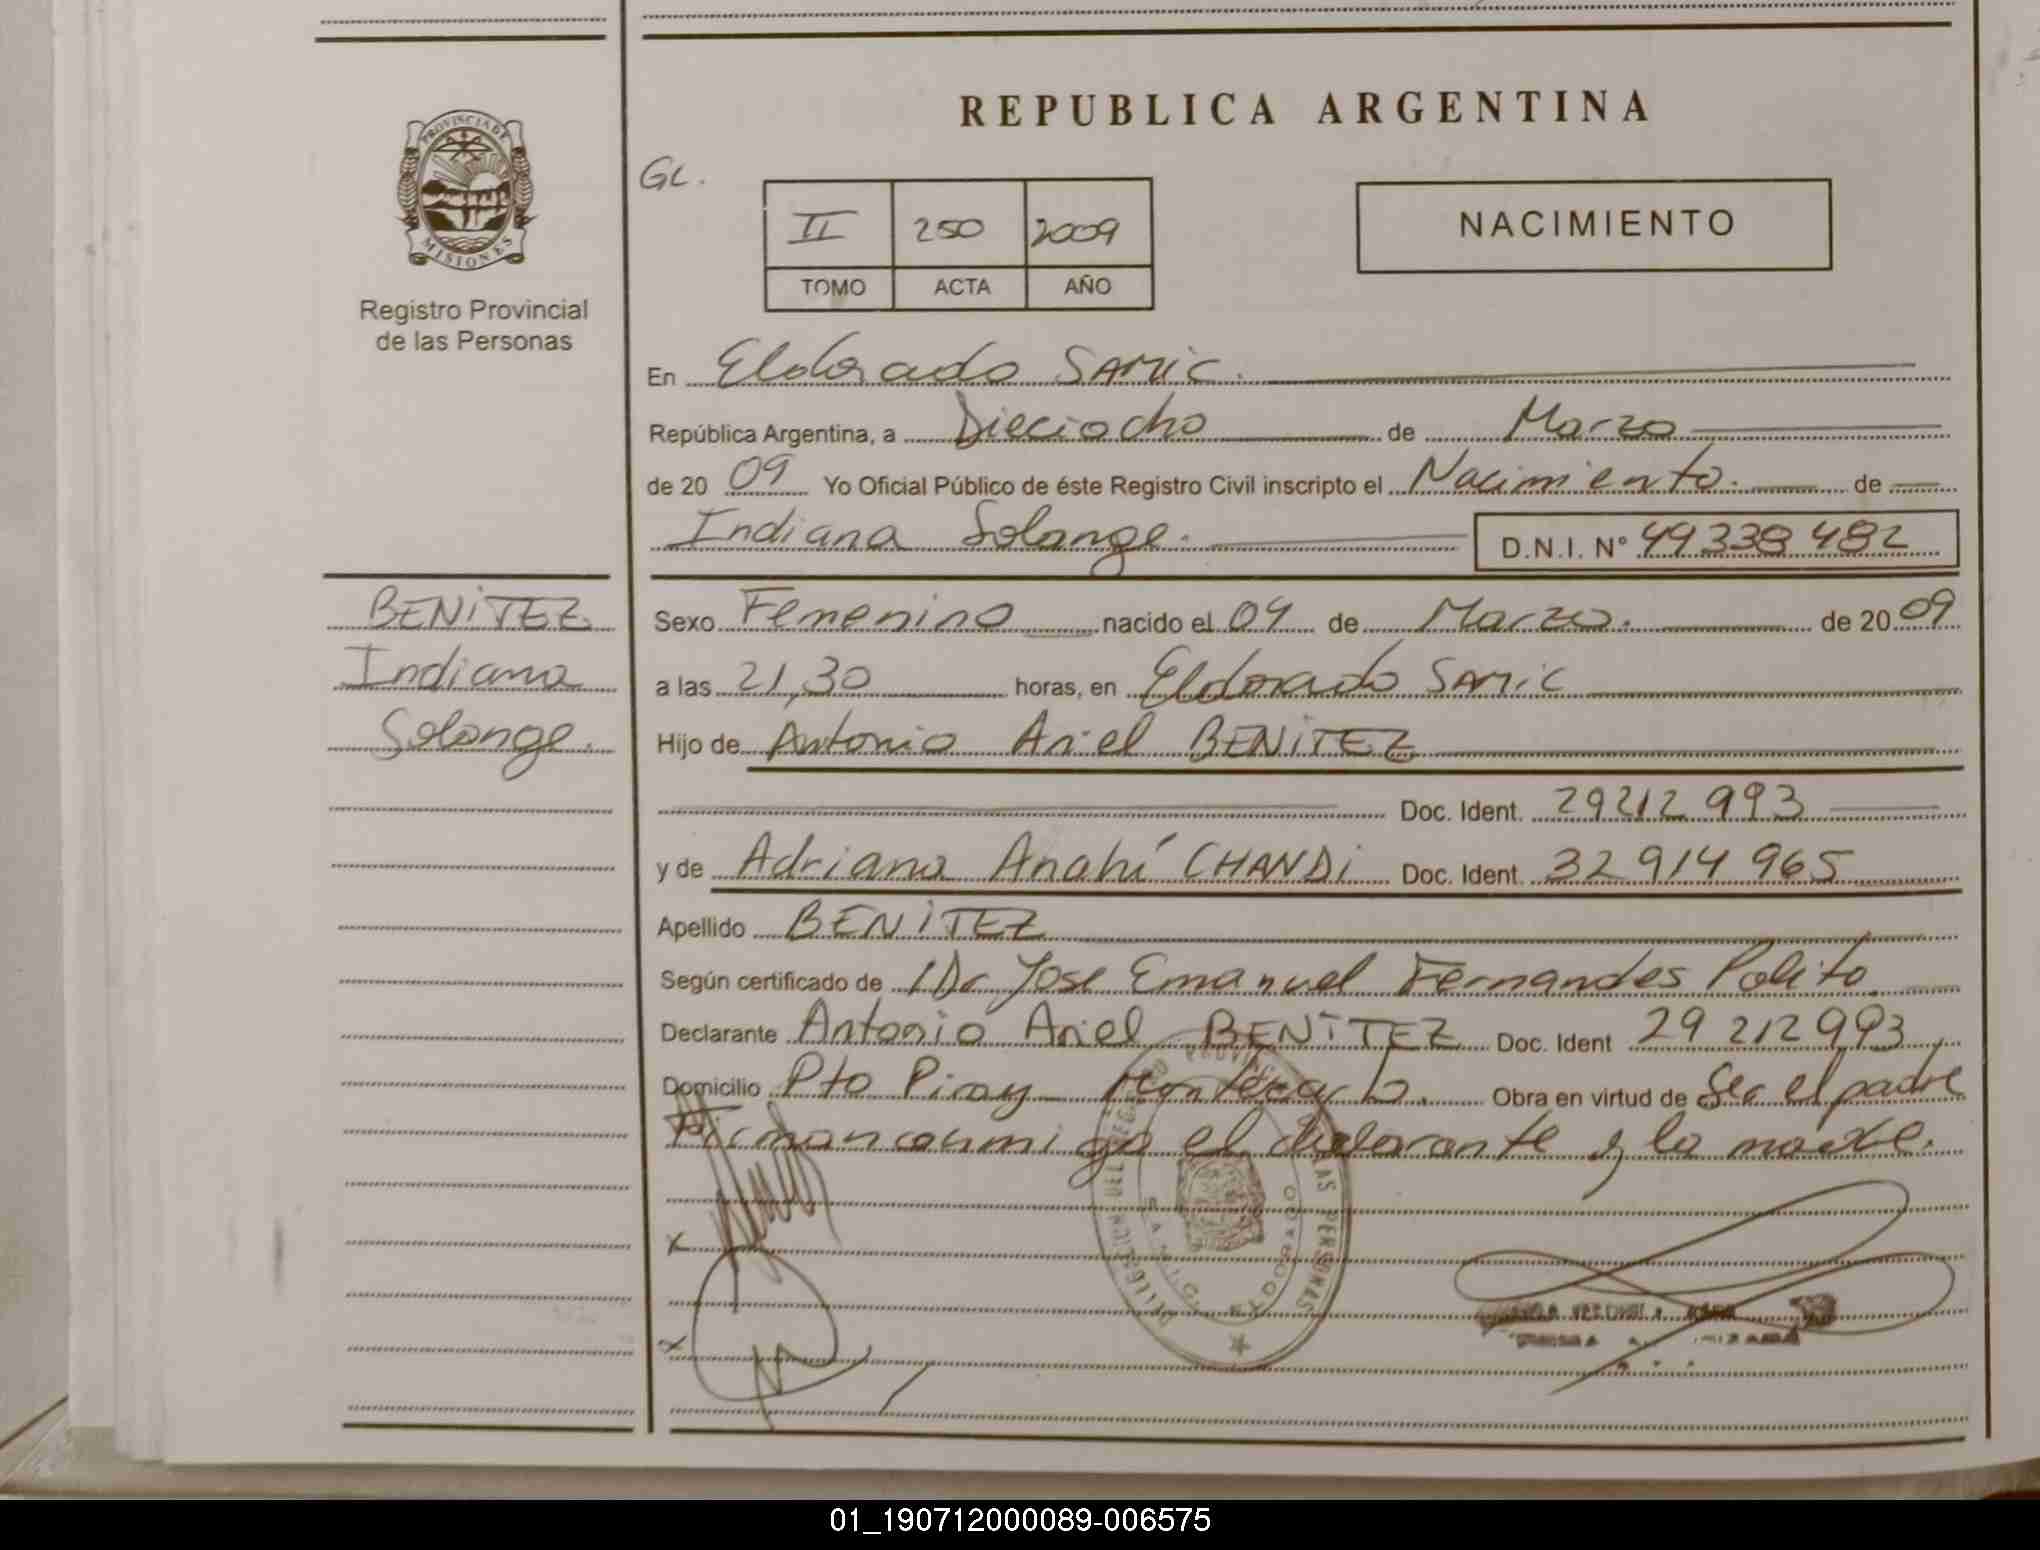 REPUBLICA ARGENTINA
PROVINCIA DE
MISIONES
Registro Provincial
de las Personas
GL.
II 250 2009
TOMO ACTA AÑO
NACIMIENTO
En Eldorado SAMIC.
República Argentina, a Dieciocho de Marzo
de 2009 Yo Oficial Público de éste Registro Civil inscripto el Nacimiento. de
Indiana Solange. D.N.I. N° 49338482
BENITEZ
Indiana
Solange.
Sexo Femenino nacido el 04 de Marzo. de 2009
a las 21,30 horas, en Eldorado SAMIC
Hijo de Antonio Ariel BENITEZ
Doc. Ident. 29212993
y de Adriana Anahí CHANDI Doc. Ident. 32914965
Apellido BENITEZ
Según certificado de Dr Jose Emanuel Fernandes Polito.
Declarante Antonio Ariel BENITEZ Doc. Ident 29212993,
Domicilio Pto Piray Montecarlo. Obra en virtud de Ser el padre
Firman conmigo el declarante y la madre.
X
X
DELEGACION DEL REGISTRO PROVINCIAL DE LAS PERSONAS
S.A.M.I.C. ELDORADO
01_190712000089-006575